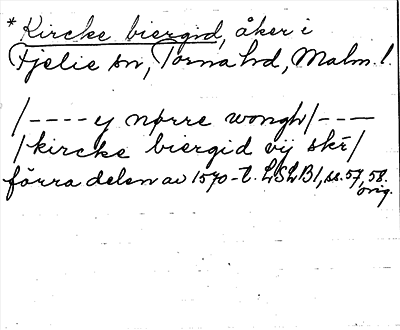 *Kircke biergid, åker i
Fjelie sn, Torna hd, Malm. l.
/---- ej nørre wongh/---
/kircke biergid vij skr̄/
förra delen av 1570-t. LSLB1, ss. 57, 58.
orig.